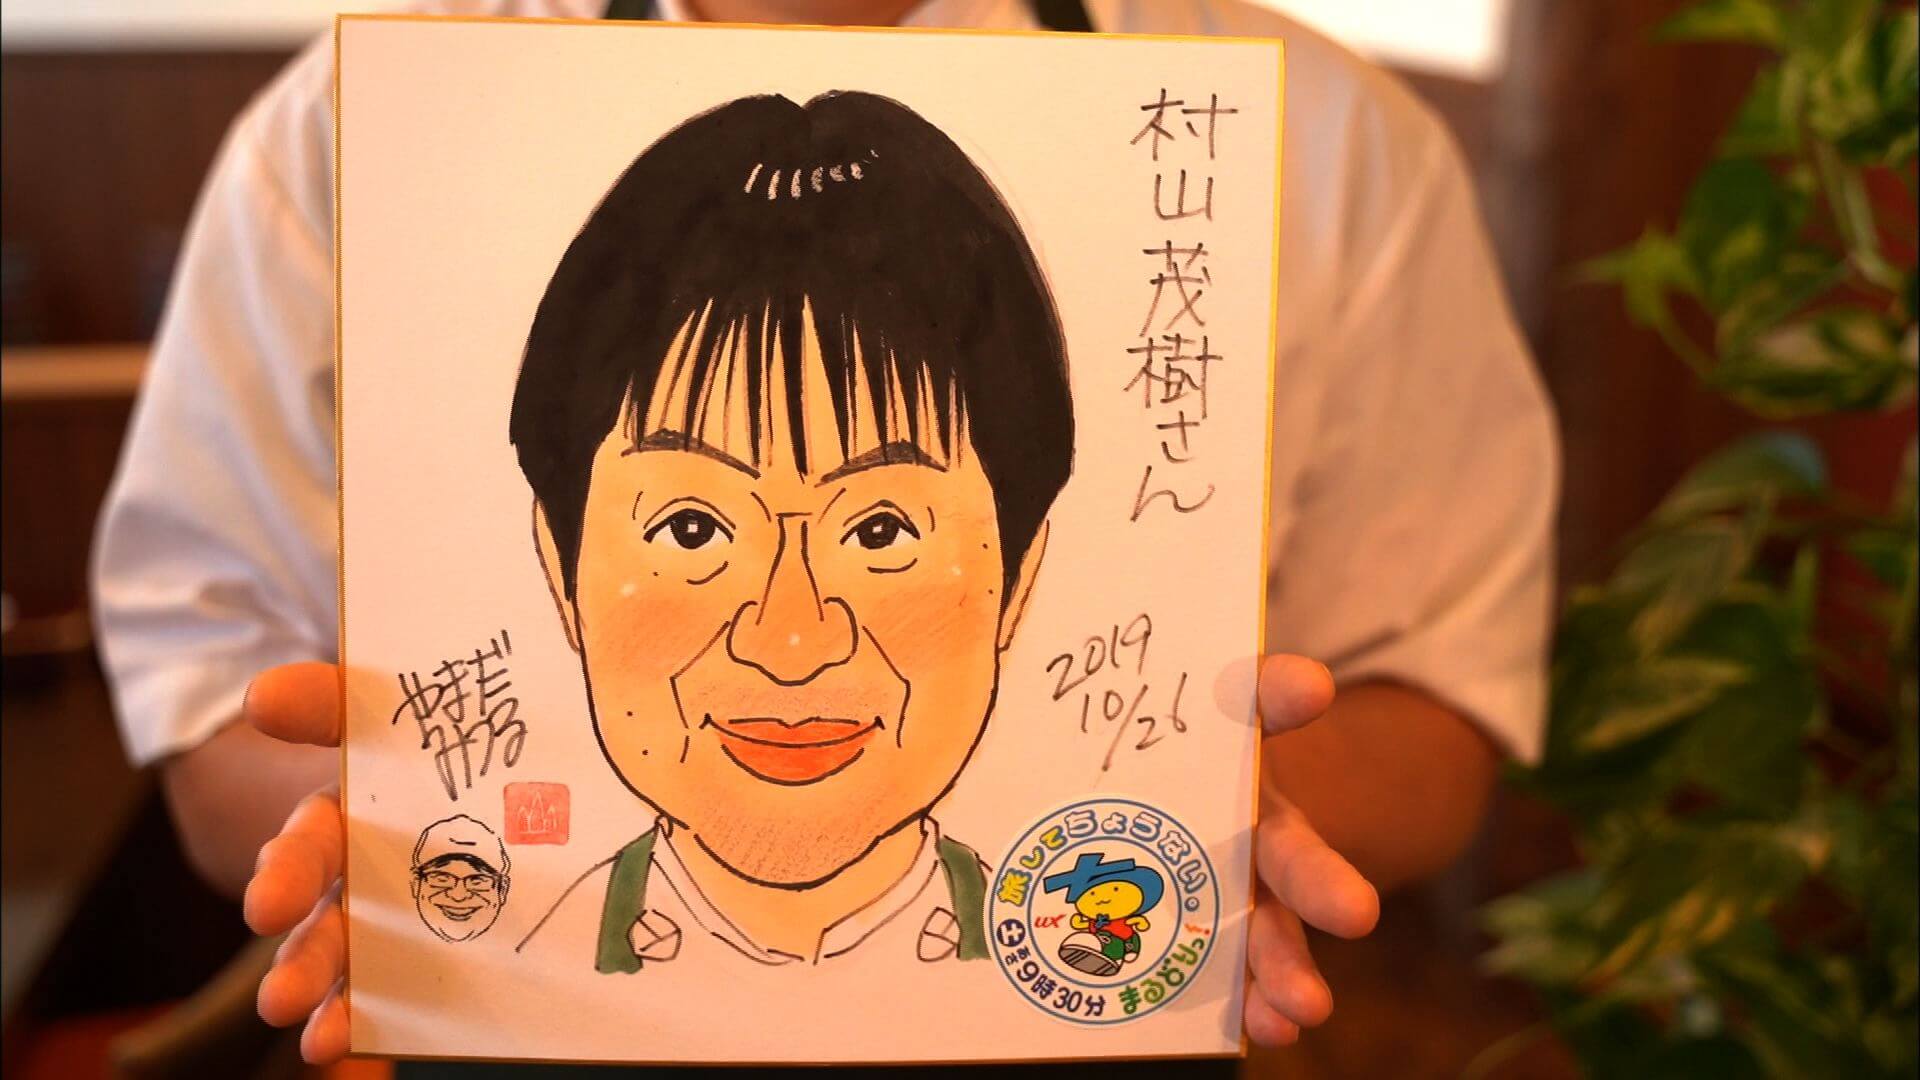 村山茂樹さん
2019
10/26
やまだ
みつる
旅してちょうない。
UX
土あさ9時30分
まるどりっ!